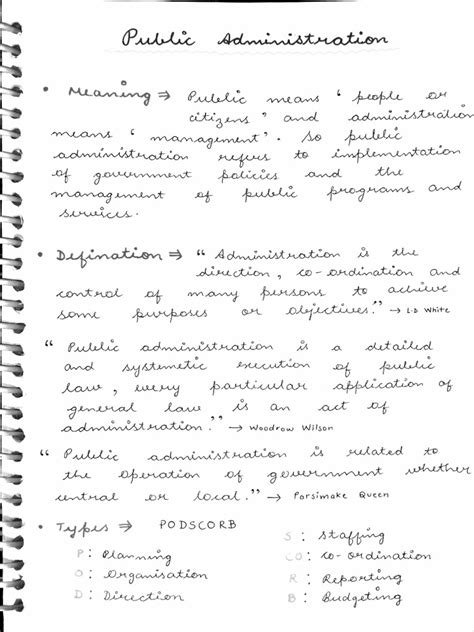 Public Administration
• Meaning ⇒ Public means ' people or
citizens ' and administration
means ' management'. So public
administration refers to implementation
of government policies and the
management of public programs and
services.
• Defination ⇒ " Administration is the
direction, co-ordination and
control of many persons to achieve
some purposes or objectives." → L.D White
" Public administration is a detailed
and systemetic execution of public
law, every particular application of
general law is an act of
administration." → Woodrow Wilson
" Public administration is related to
the operation of government whether
central or local." → Parsimake Queen
• Types ⇒ PODSCORB
P : Planning
O : Organisation
D : Direction
S : Staffing
CO : Co-ordination
R : Reporting
B : Budgeting